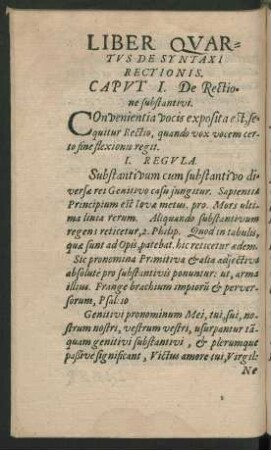 LIBER QVAR=
TVS DE SYNTAXI
RECTIONIS.
CAPVT I. De Rectio-
ne substantivi.
COnvenientia vocis exposita est. se-
quitur Rectio, quando vox vocem cer-
to fine flexionis regit.
I. REGVLA
Substantivum cum substantivo di-
versæ rei Genitivo casu jungitur. Sapientiæ
Principium est Iovæ metus. pro. Mors ulti-
ma linia rerum. Aliquando substantivum
regens reticetur, 2. Philip. Quod in tabulis,
quæ sunt ad Opis patebat. hic reticetur ædem.
Sic pronomina Primitiva & alia adjectiva
absolutè pro substantivis ponuntur: ut, arma
illius. Frange brachium impiorū & perver-
sorum, Psal: 10
Genitivi pronominum Mei, tui, sui, no-
strum nostri, vestrum vestri, usurpantur tā-
quam genitivi substantivi, & plerumque
passivè significant, Victus amore tui, Virgil:
Ne